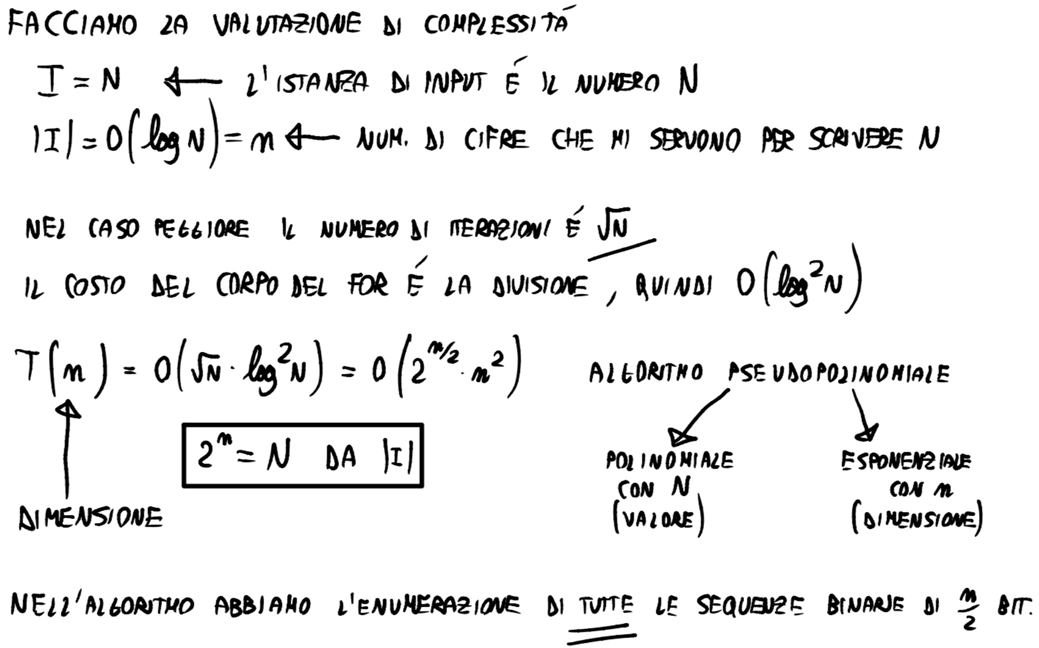 FACCIAMO LA VALUTAZIONE DI COMPLESSITÁ
I = N ← L'ISTANZA DI INPUT É IL NUMERO N
|I| = O(log N) = n ← NUM. DI CIFRE CHE MI SERVONO PER SCRIVERE N
NEL CASO PEGGIORE IL NUMERO DI ITERAZIONI É √N
IL COSTO DEL CORPO DEL FOR É LA DIVISIONE, QUINDI O(log²N)
T(n) = O(√N · log²N) = O(2^(n/2) · n²)
2^n = N DA |I|
DIMENSIONE
ALGORITMO PSEUDOPOLINOMIALE
POLINOMIALE
CON N
(VALORE)
ESPONENZIALE
CON n
(DIMENSIONE)
NELL'ALGORITMO ABBIAMO L'ENUMERAZIONE DI TUTTE LE SEQUENZE BINARIE DI n/2 BIT.